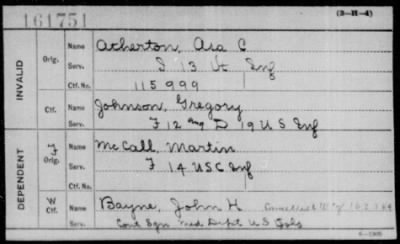 161751
(3-H-4)
INVALID
Orig.
Name Atherton, Asa C
Serv. I 13 Vt Inf
Ctf. No. 115999
Ctf.
Name Johnson, Gregory
Serv. F 12 D 19 U S Inf
DEPENDENT
Orig.
Name McCall, Martin
Serv. F 14 USC Inf
W
Ctf.
Name Bayne, John H
Serv. Cont Sgn Med Dept US Vols
6-1308